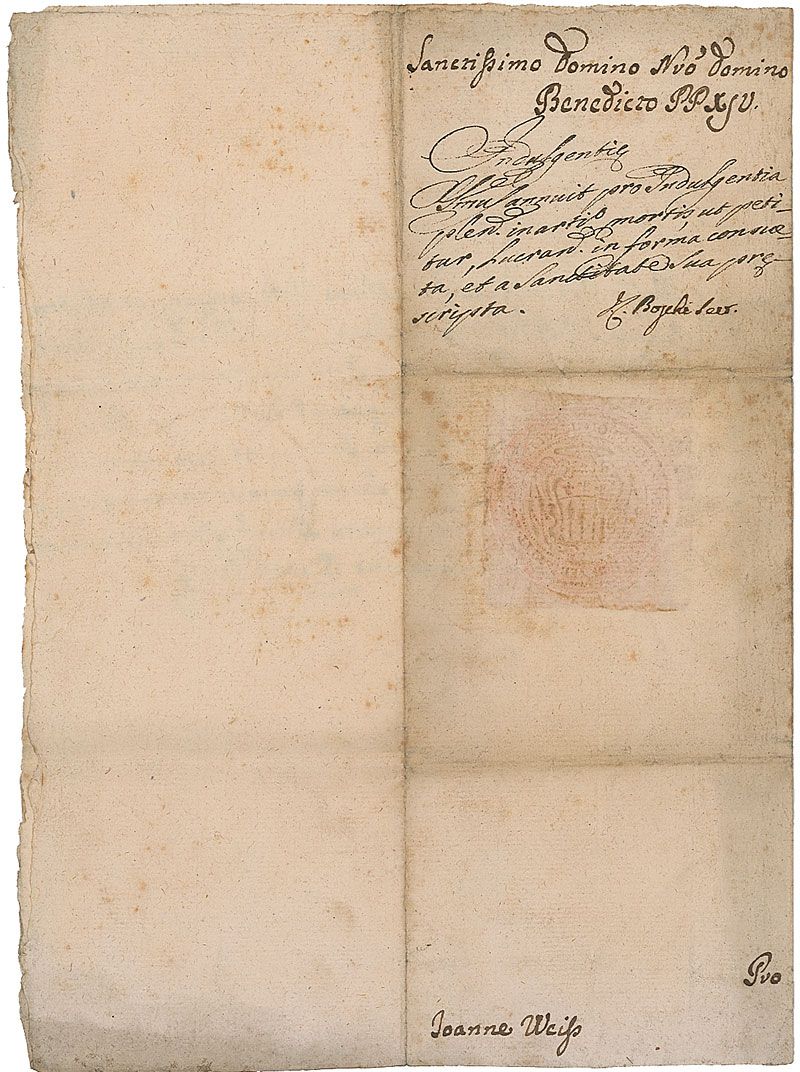 Sanctissimo Domino Nrõ Domino
Benedicto PP XIV.
Indulgentiæ
SSmus annuit pro Indulgentia
plen. in artis mortis, ut peti-
tur, lucrand. in forma consue-
ta, et a Sanctitate Sua præ-
scripta.
Secr.
Pro
Joanne Weiß